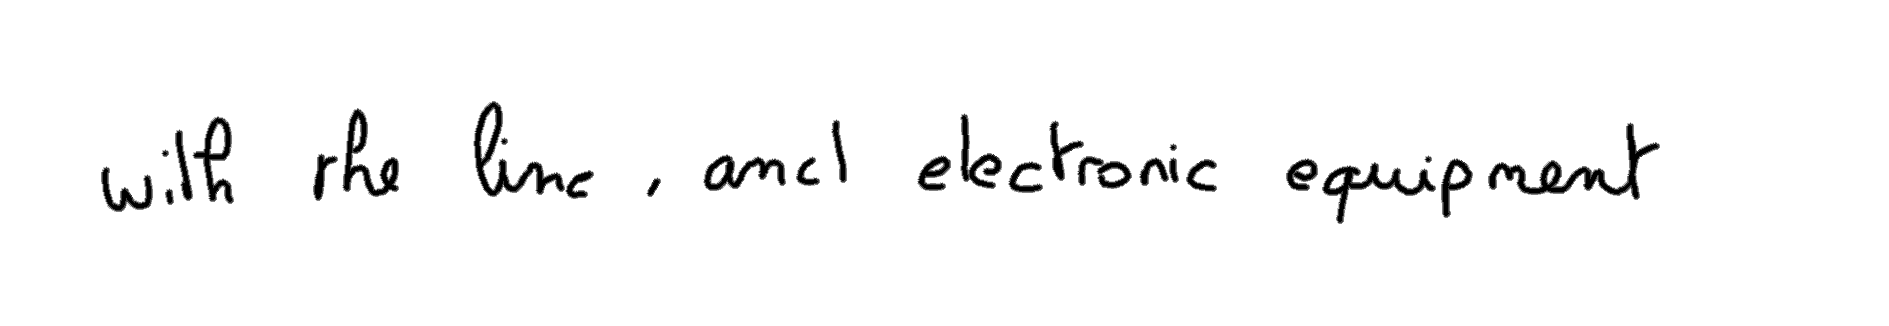 with the line , and electronic equipment